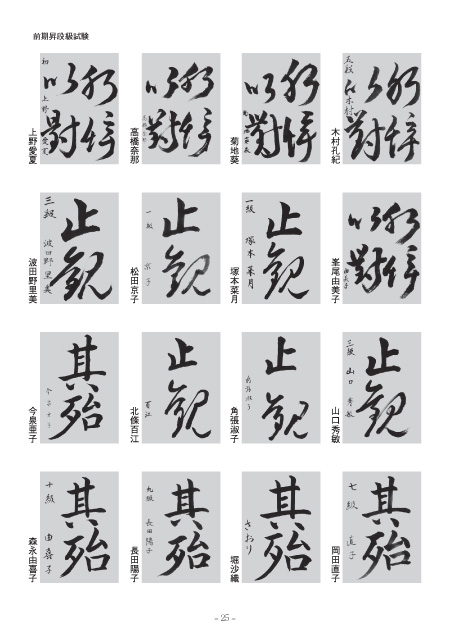 前期昇段級試験
木村孔紀
五段
木村
菊地葵
高橋奈那
上野愛夏
初
上野
愛夏
以
對
峯尾由美子
由美子
塚本菜月
止観
一級
塚本菜月
松田京子
止観
一級
京子
波田野里美
止観
三級
波田野里美
山口秀敏
止観
三級
山口秀敏
角張淑子
止観
北條百江
止観
百江
今泉亜子
其殆
岡田直子
其殆
七級
直子
堀沙織
其殆
さおり
長田陽子
其殆
九級
長田陽子
森永由喜子
其殆
十級
由喜子
- 25 -